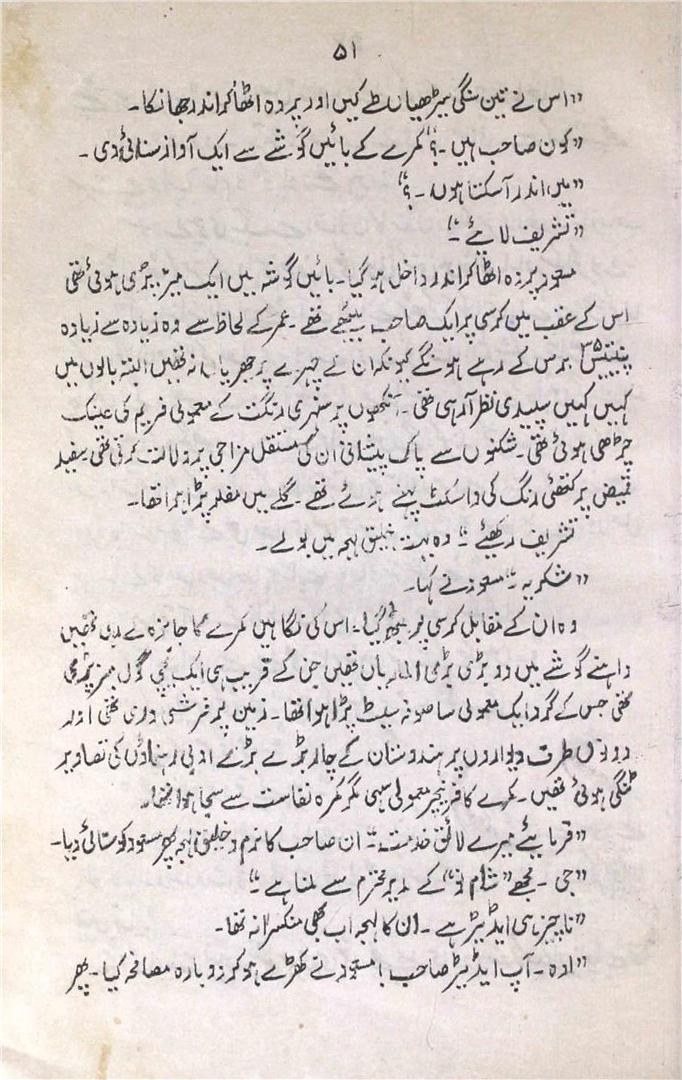 ۵۱
”اس نے تین سنگی سیڑھیاں طے کیں اور پردہ اٹھا کر اندر جھانکا۔
”کون صاحب ہیں۔؟“ کمرے کے بائیں گوشے سے ایک آواز سنائی دی۔
”میں اندر آ سکتا ہوں۔؟“
”تشریف لایئے۔“
مسعود پردہ اٹھا کر اندر داخل ہو گیا۔ بائیں گوشہ میں ایک میز پڑی ہوئی تھی
اس کے عقب میں کرسی پر ایک صاحب بیٹھے تھے۔ عمر کے لحاظ سے وہ زیادہ سے زیادہ
پینتیس ۳۵ برس کے رہے ہونگے کیونکہ ان کے چہرے پر جھریاں نہ تھیں البتہ بالوں میں
کہیں کہیں سپیدی نظر آ رہی تھی۔ آنکھوں پر سنہری رنگت کے معمولی فریم کی عینک
چڑھی ہوئی تھی۔ شکنوں سے پاک پیشانی ان کی مستقل مزاجی پر دلالت کرتی تھی سفید
قمیض پر کتھئی رنگ کی واسکٹ پہنے ہوئے تھے۔ گلے میں مفلر پڑا ہوا تھا۔
تشریف رکھئے۔“ وہ بہت خلیق لہجہ میں بولے۔
”شکریہ۔“ مسعود نے کہا۔
وہ ان کے مقابل کرسی پر بیٹھ گیا۔ اس کی نگاہیں کمرے کا جائزہ لے رہی تھیں
داہنے گوشے میں دو بڑی بڑی الماریاں تھیں جن کے قریب ہی ایک نیچی گول میز پڑی
تھی جس کے گرد ایک معمولی سا صوفہ سیٹ پڑا ہوا تھا۔ زمین پر فرشی دری تھی اور
دونوں طرف دیواروں پر ہندوستان کے چار بڑے بڑے ادبی رہنماؤں کی تصاویر
ٹنگی ہوئی تھیں۔ کمرے کا فرنیچر معمولی سہی مگر کمرہ نفاست سے سجا ہوا تھا۔
”فرمایئے میرے لائق خدمت۔“ ان صاحب کا نرم و خلیق لہجہ پھر مسعود کو سنائی دیا۔
”جی۔ مجھے ”شام نو“ کے مدیر محترم سے ملنا ہے۔“
”ناچیز ہی ایڈیٹر ہے۔ ان کا لہجہ اب بھی منکسرانہ تھا۔
”اوہ۔ آپ ایڈیٹر صاحب! مسعود نے کھڑے ہو کر دوبارہ مصافحہ کیا۔ پھر